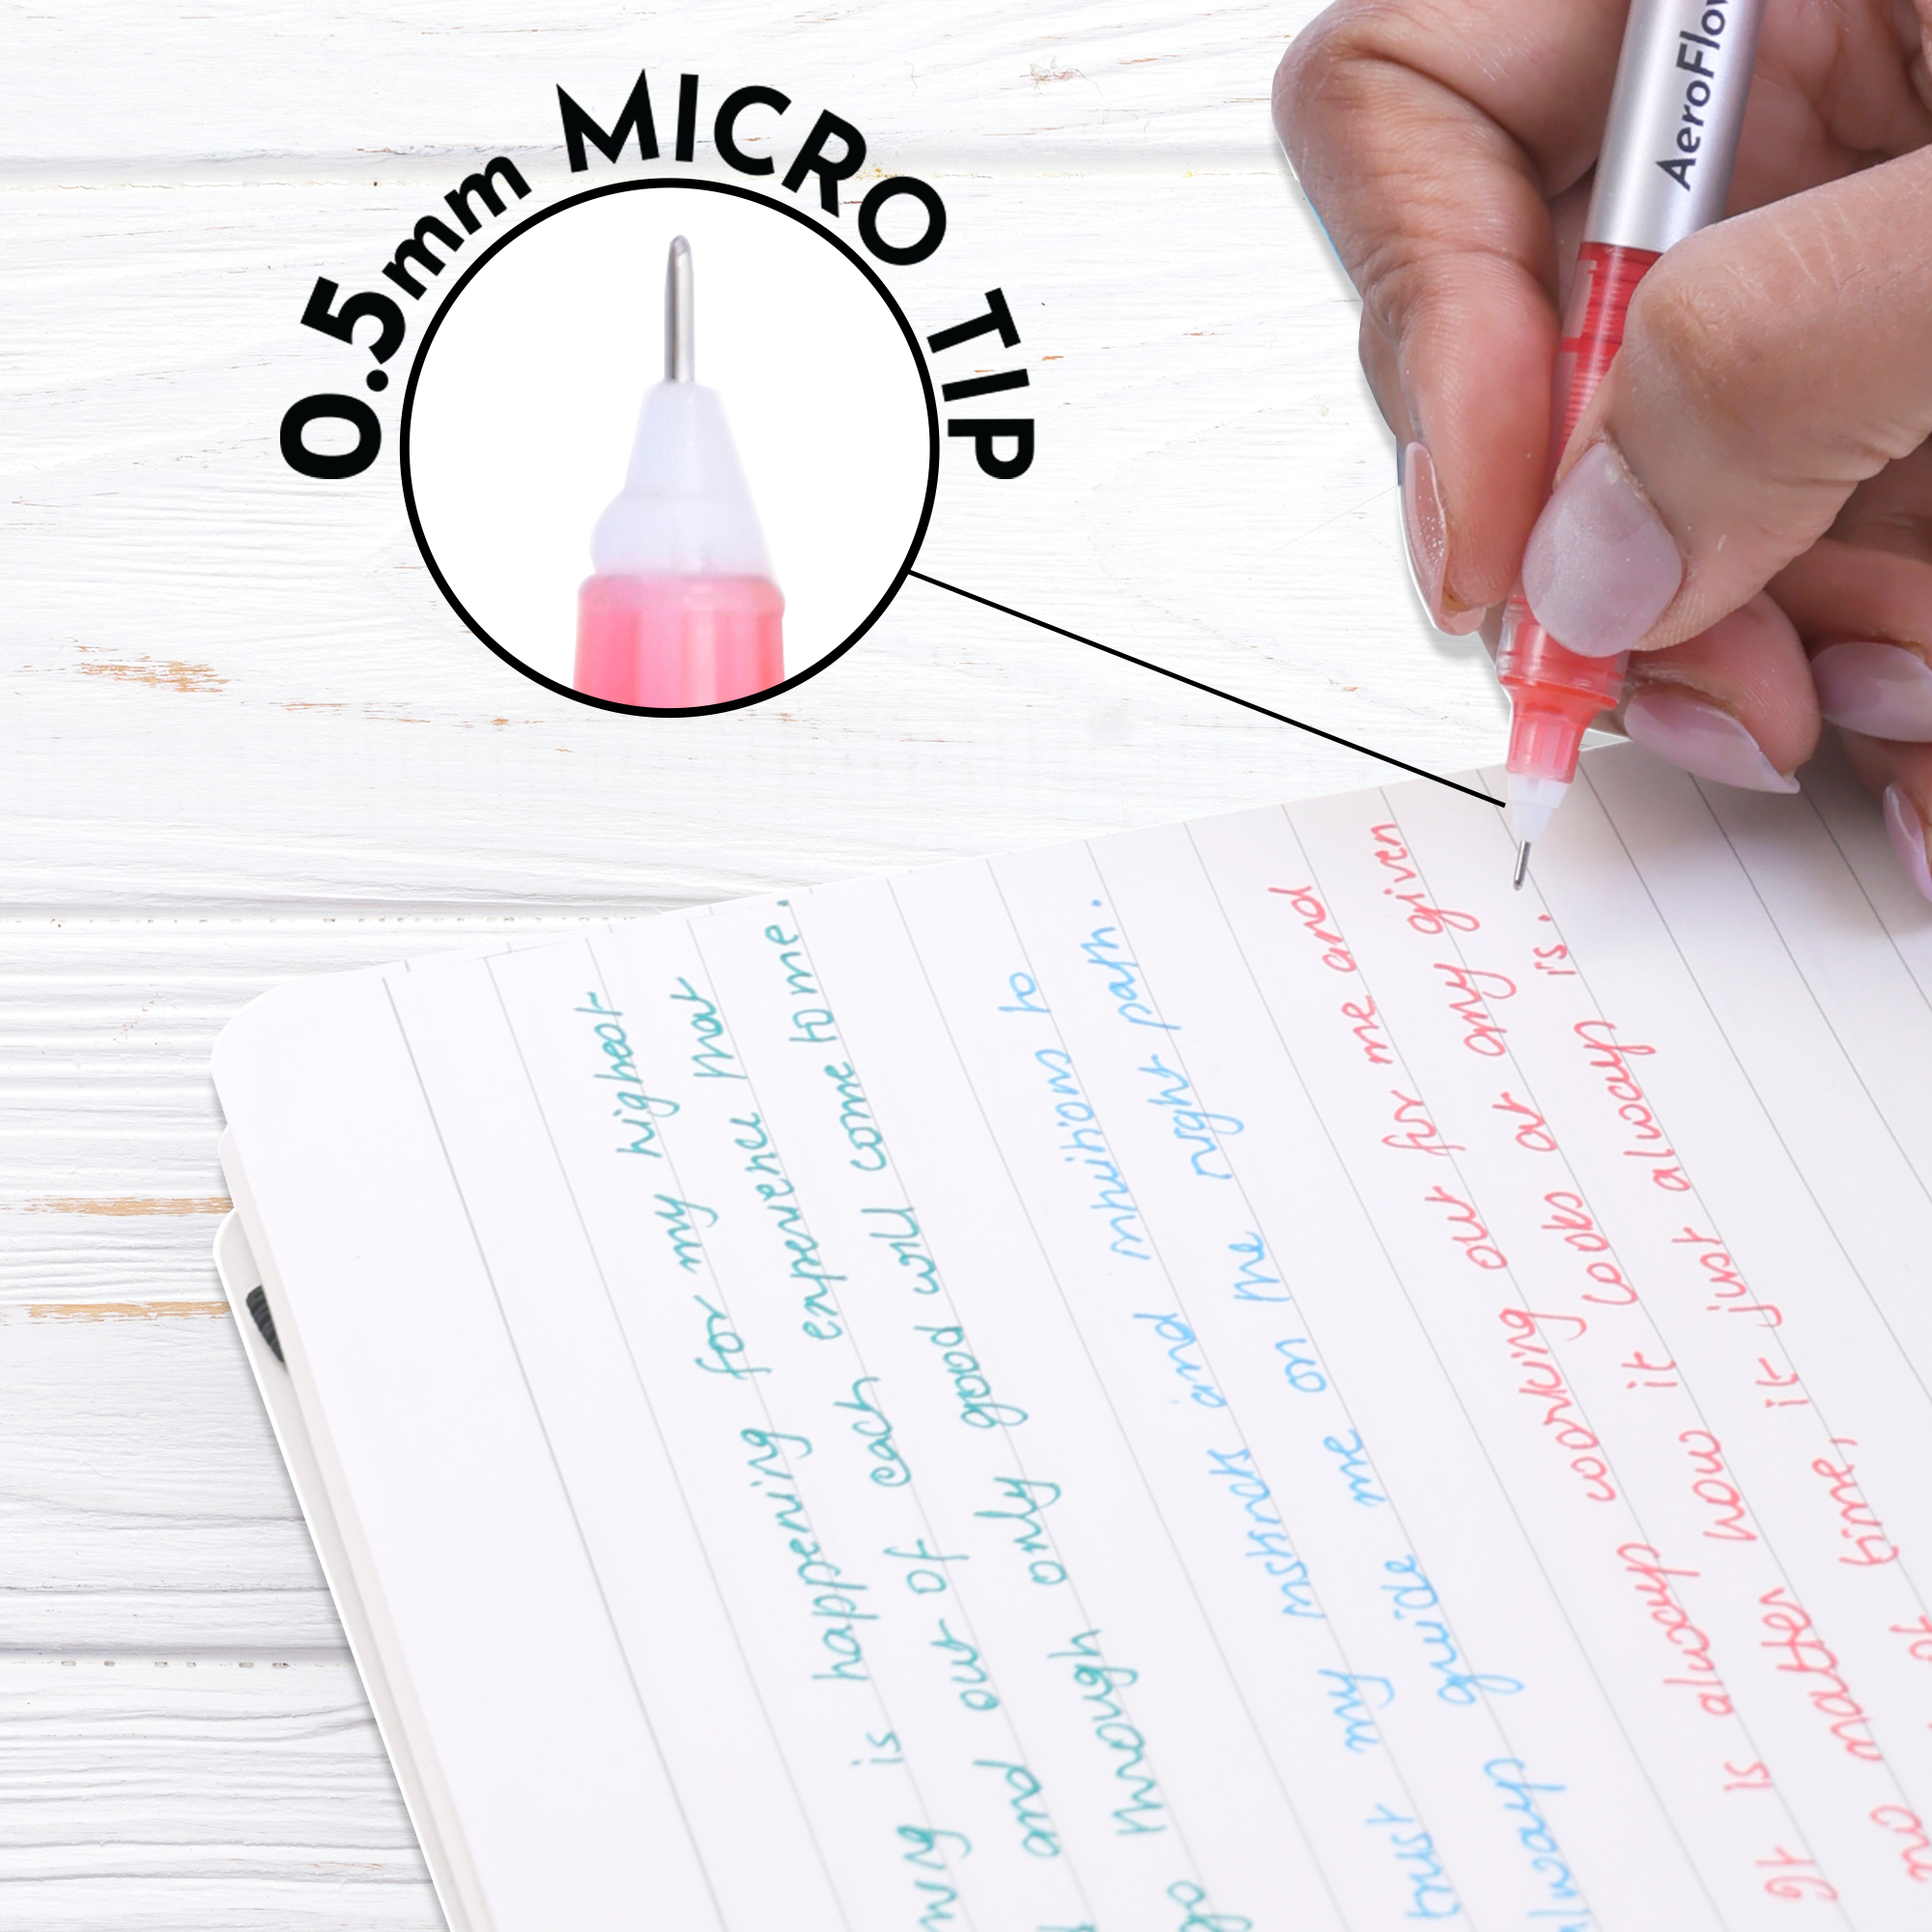 0.5mm MICRO TIP
AeroFlow
is happening for my highest
and out of each experience that
though only good will come to me.
trust my instincts and intuitions to
guide me on the right path.
It is always working out for me and
no matter how it looks at any given
time, it just always is.